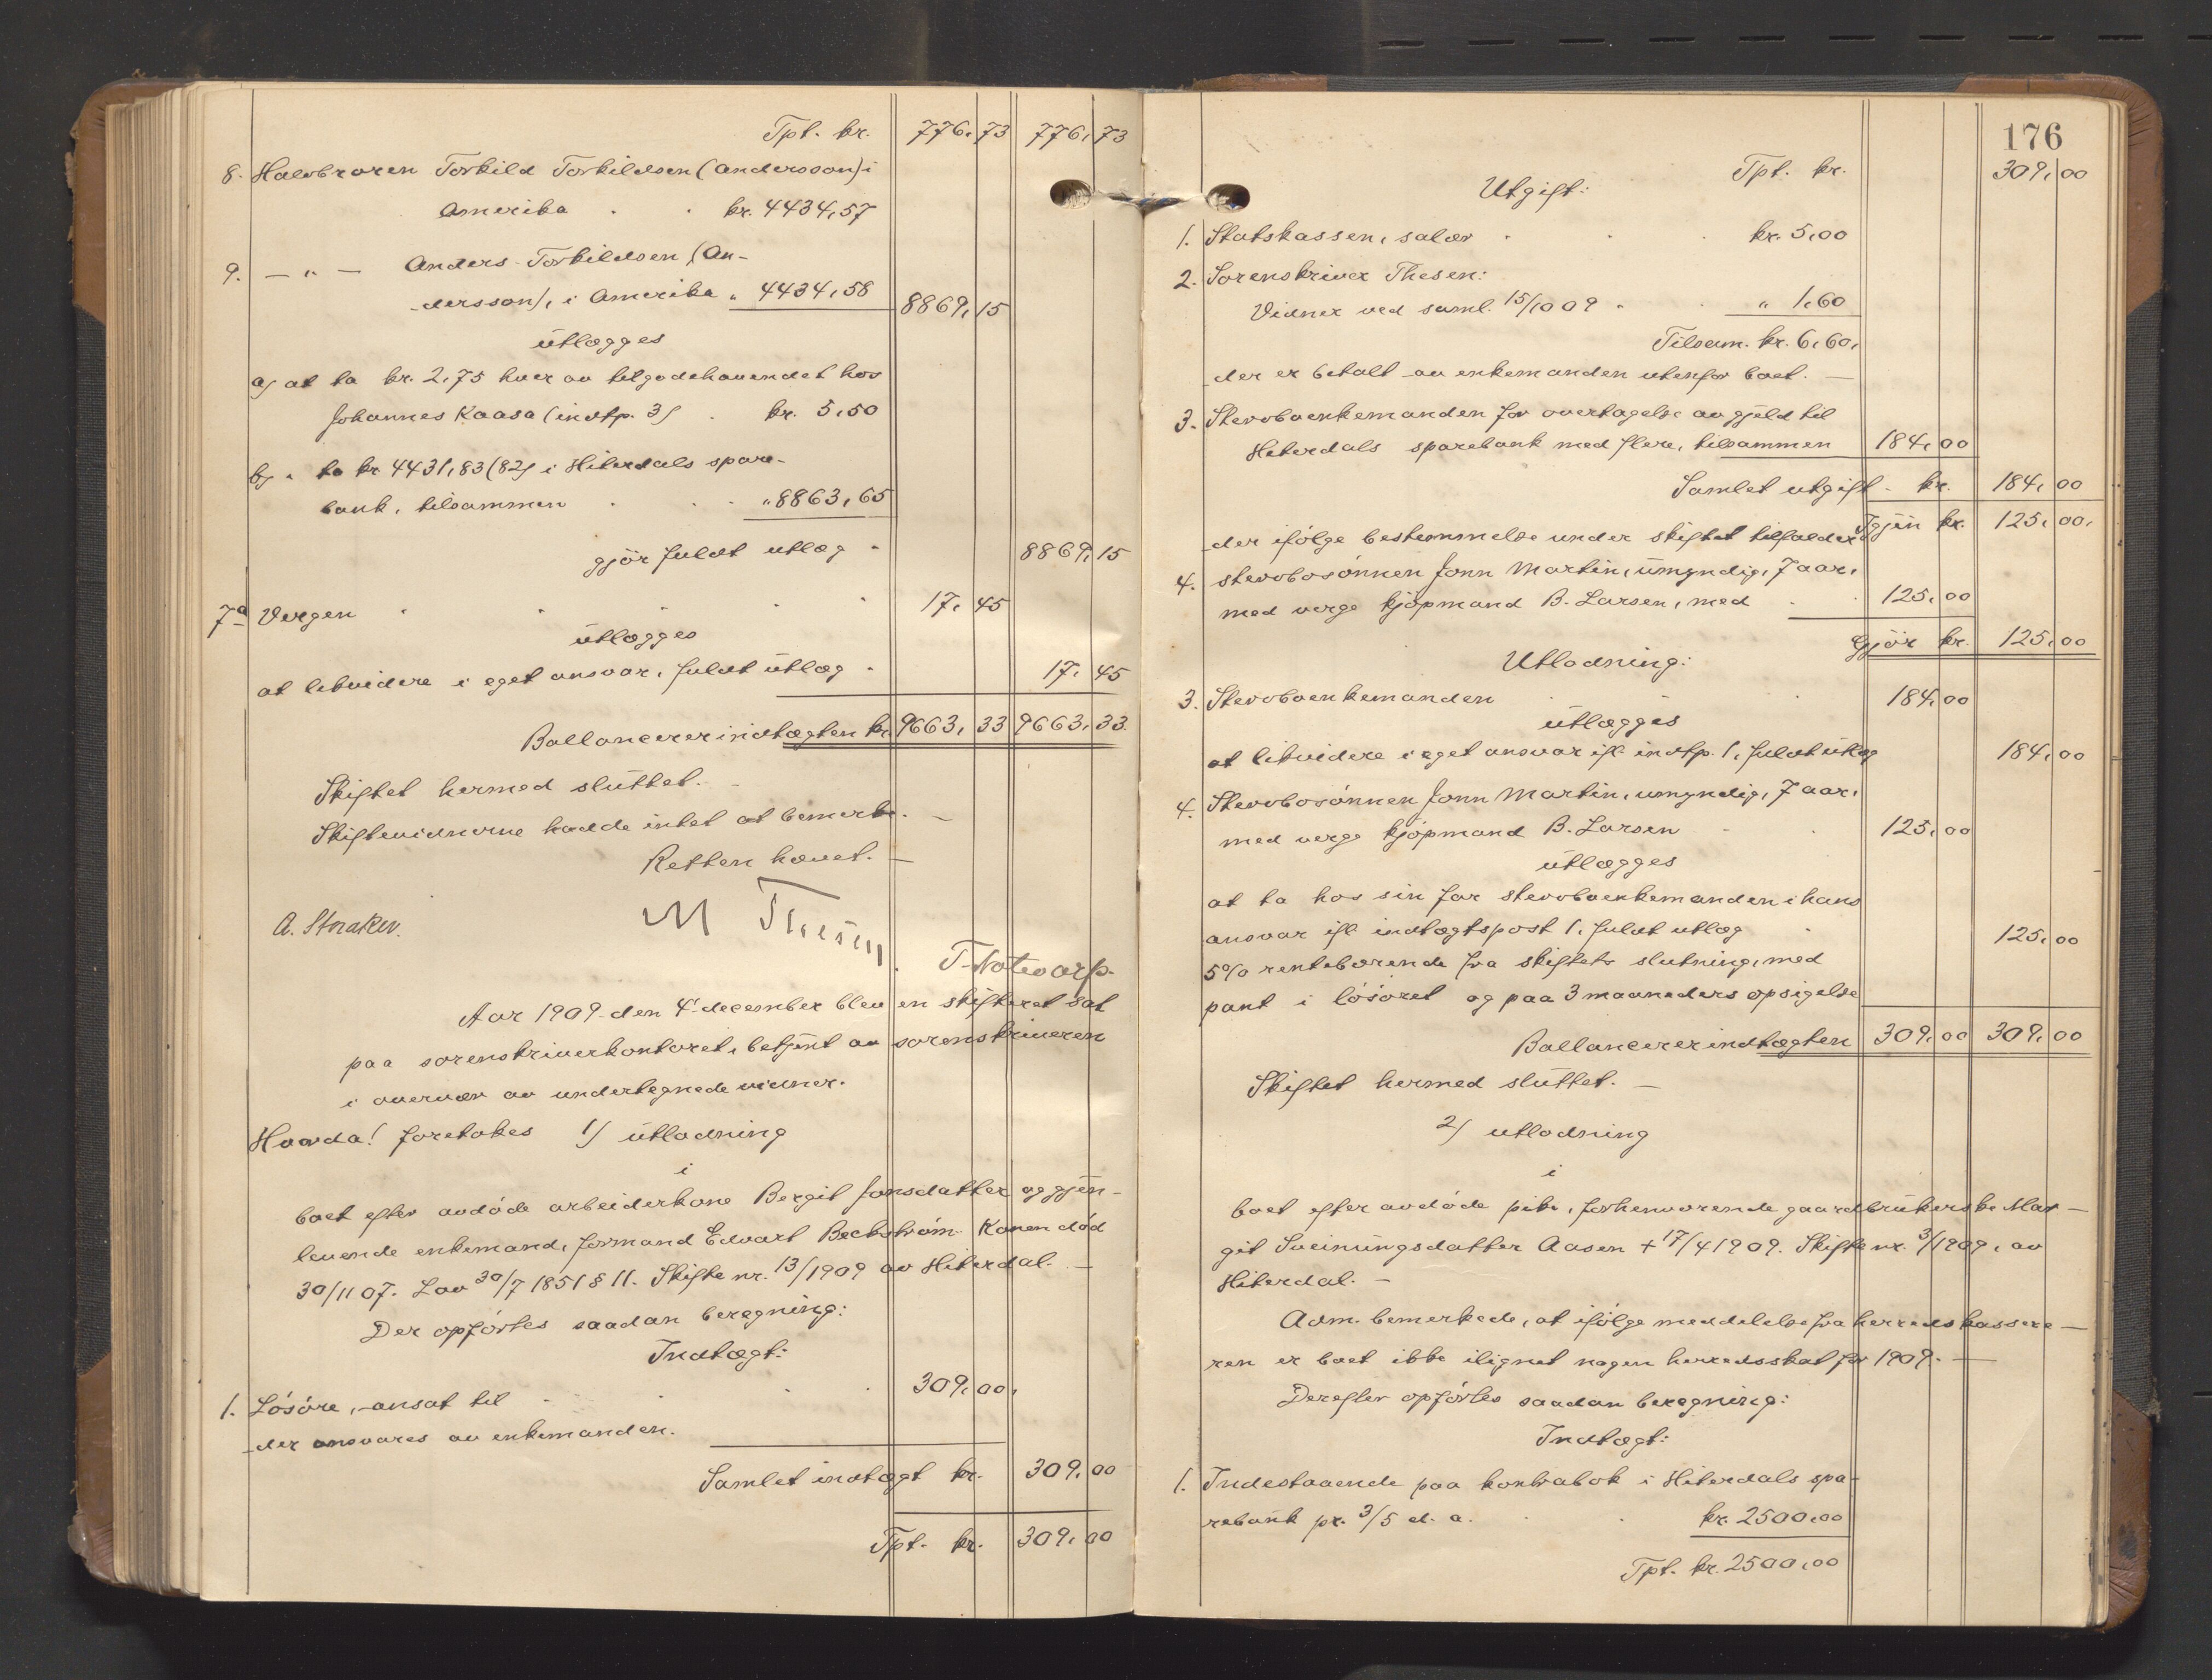 Tpt. kr. 776,73 776,73
8. Halvbroren Torkild Torkildsen (Andersson) i
Amerika . . kr. 4434,57
9. — " — Anders Torkildsen (An-
dersson), i Amerika " 4434,58 8869,15
utlægges
a) at ta kr. 2,75 hver av tilgodehavendet hos
Johannes Kaasa (indtp. 3) . kr. 5,50
b) " ta kr 4431,83 (82) i Hiterdals spare-
bank, tilsammen . . . " 8863,65
gjör fuldt utlæg . 8869,15
7a Vergen . . . . . 17,45
utlægges
at likvidere i eget ansvar, fuldt utlæg . 17,45
Ballancerer indtægten kr. 9663,33 9663,33.
Skiftet hermed sluttet. —
Skiftevidnerne hadde intet at bemerke. —
Retten hævet. —
A. Straker. M Thesen
T. Notevarp.
Aar 1909 den 4. december blev en skifteret sat
paa sorenskriverkontoret, betjent av sorenskriveren
i overvær av undertegnede vidner.
Hvorda! foretokes 1) utlodning
i
boet efter avdöde arbeiderkone Bergit Jonsdatter og gjen-
levende enkemand, formand Edvart Beckström. Konen död
30/11 07. Lov 30/7 1851 § 11. Skifte nr. 13/1909 av Hiterdal. —
Der opförtes saadan beregning:
Indtægt:
1. Lösöre, ansat til . . . . 309,00,
der ansvares av enkemanden.
Samlet indtægt kr. 309,00
Tpt. kr. 309,00
176
Tpt. kr. 309,00
Utgift:
1. Statskassen, salær . . . kr. 5,00
2. Sorenskriver Thesen:
Vidner ved saml. 15/10 09 . . " 1,60
Tilsam. kr. 6,60,
der er betalt av enkemanden utenfor boet. —
3. Stervboenkemanden for overtagelse av gjeld til
Hiterdals sparebank med flere, tilsammen 184,00
Samlet utgift . kr. 184,00
Igjen kr. 125,00,
der ifölge bestemmelse under skiftet tilfalder
4. stervbosönnen Jonn Martin, umyndig, 7 aar,
med verge kjöpmand B. Larsen, med . . 125,00
Gjör kr. 125,00
Utlodning:
3. Stervboenkemanden . . . 184,00
utlægges
at likvidere i eget ansvar ifl. indtp. 1, fuldt utlæg 184,00
4. Stervbosönnen Jonn Martin, umyndig, 7 aar,
med verge kjöpmand B. Larsen . . 125,00
utlægges
at ta hos sin far stervboenkemanden i hans
ansvar ifl. indtægtspost 1, fuldt utlæg . 125,00
5% rentebærende fra skiftets slutning, med
pant i lösöret og paa 3 maaneders opsigelse
Ballancerer indtægten 309,00 309,00
Skiftet hermed sluttet. —
2) utlodning
i
boet efter avdöde pike, forhenværende gaardbrukerske Mar-
git Sveinungsdatter Aasen + 17/4 1909. Skifte nr. 3/1909, av
Hiterdal. —
Adm. bemerkede, at ifölge meddelelse fra herredskassere-
ren er boet ikke ilignet nogen herredsskat for 1909. —
Derefter opförtes saadan beregning:
Indtægt:
1. Indestaaende paa kontrabok i Hiterdals spa-
rebank pr. 3/5 d. a. . . kr. 2500,00
Tpt. kr. 2500,00